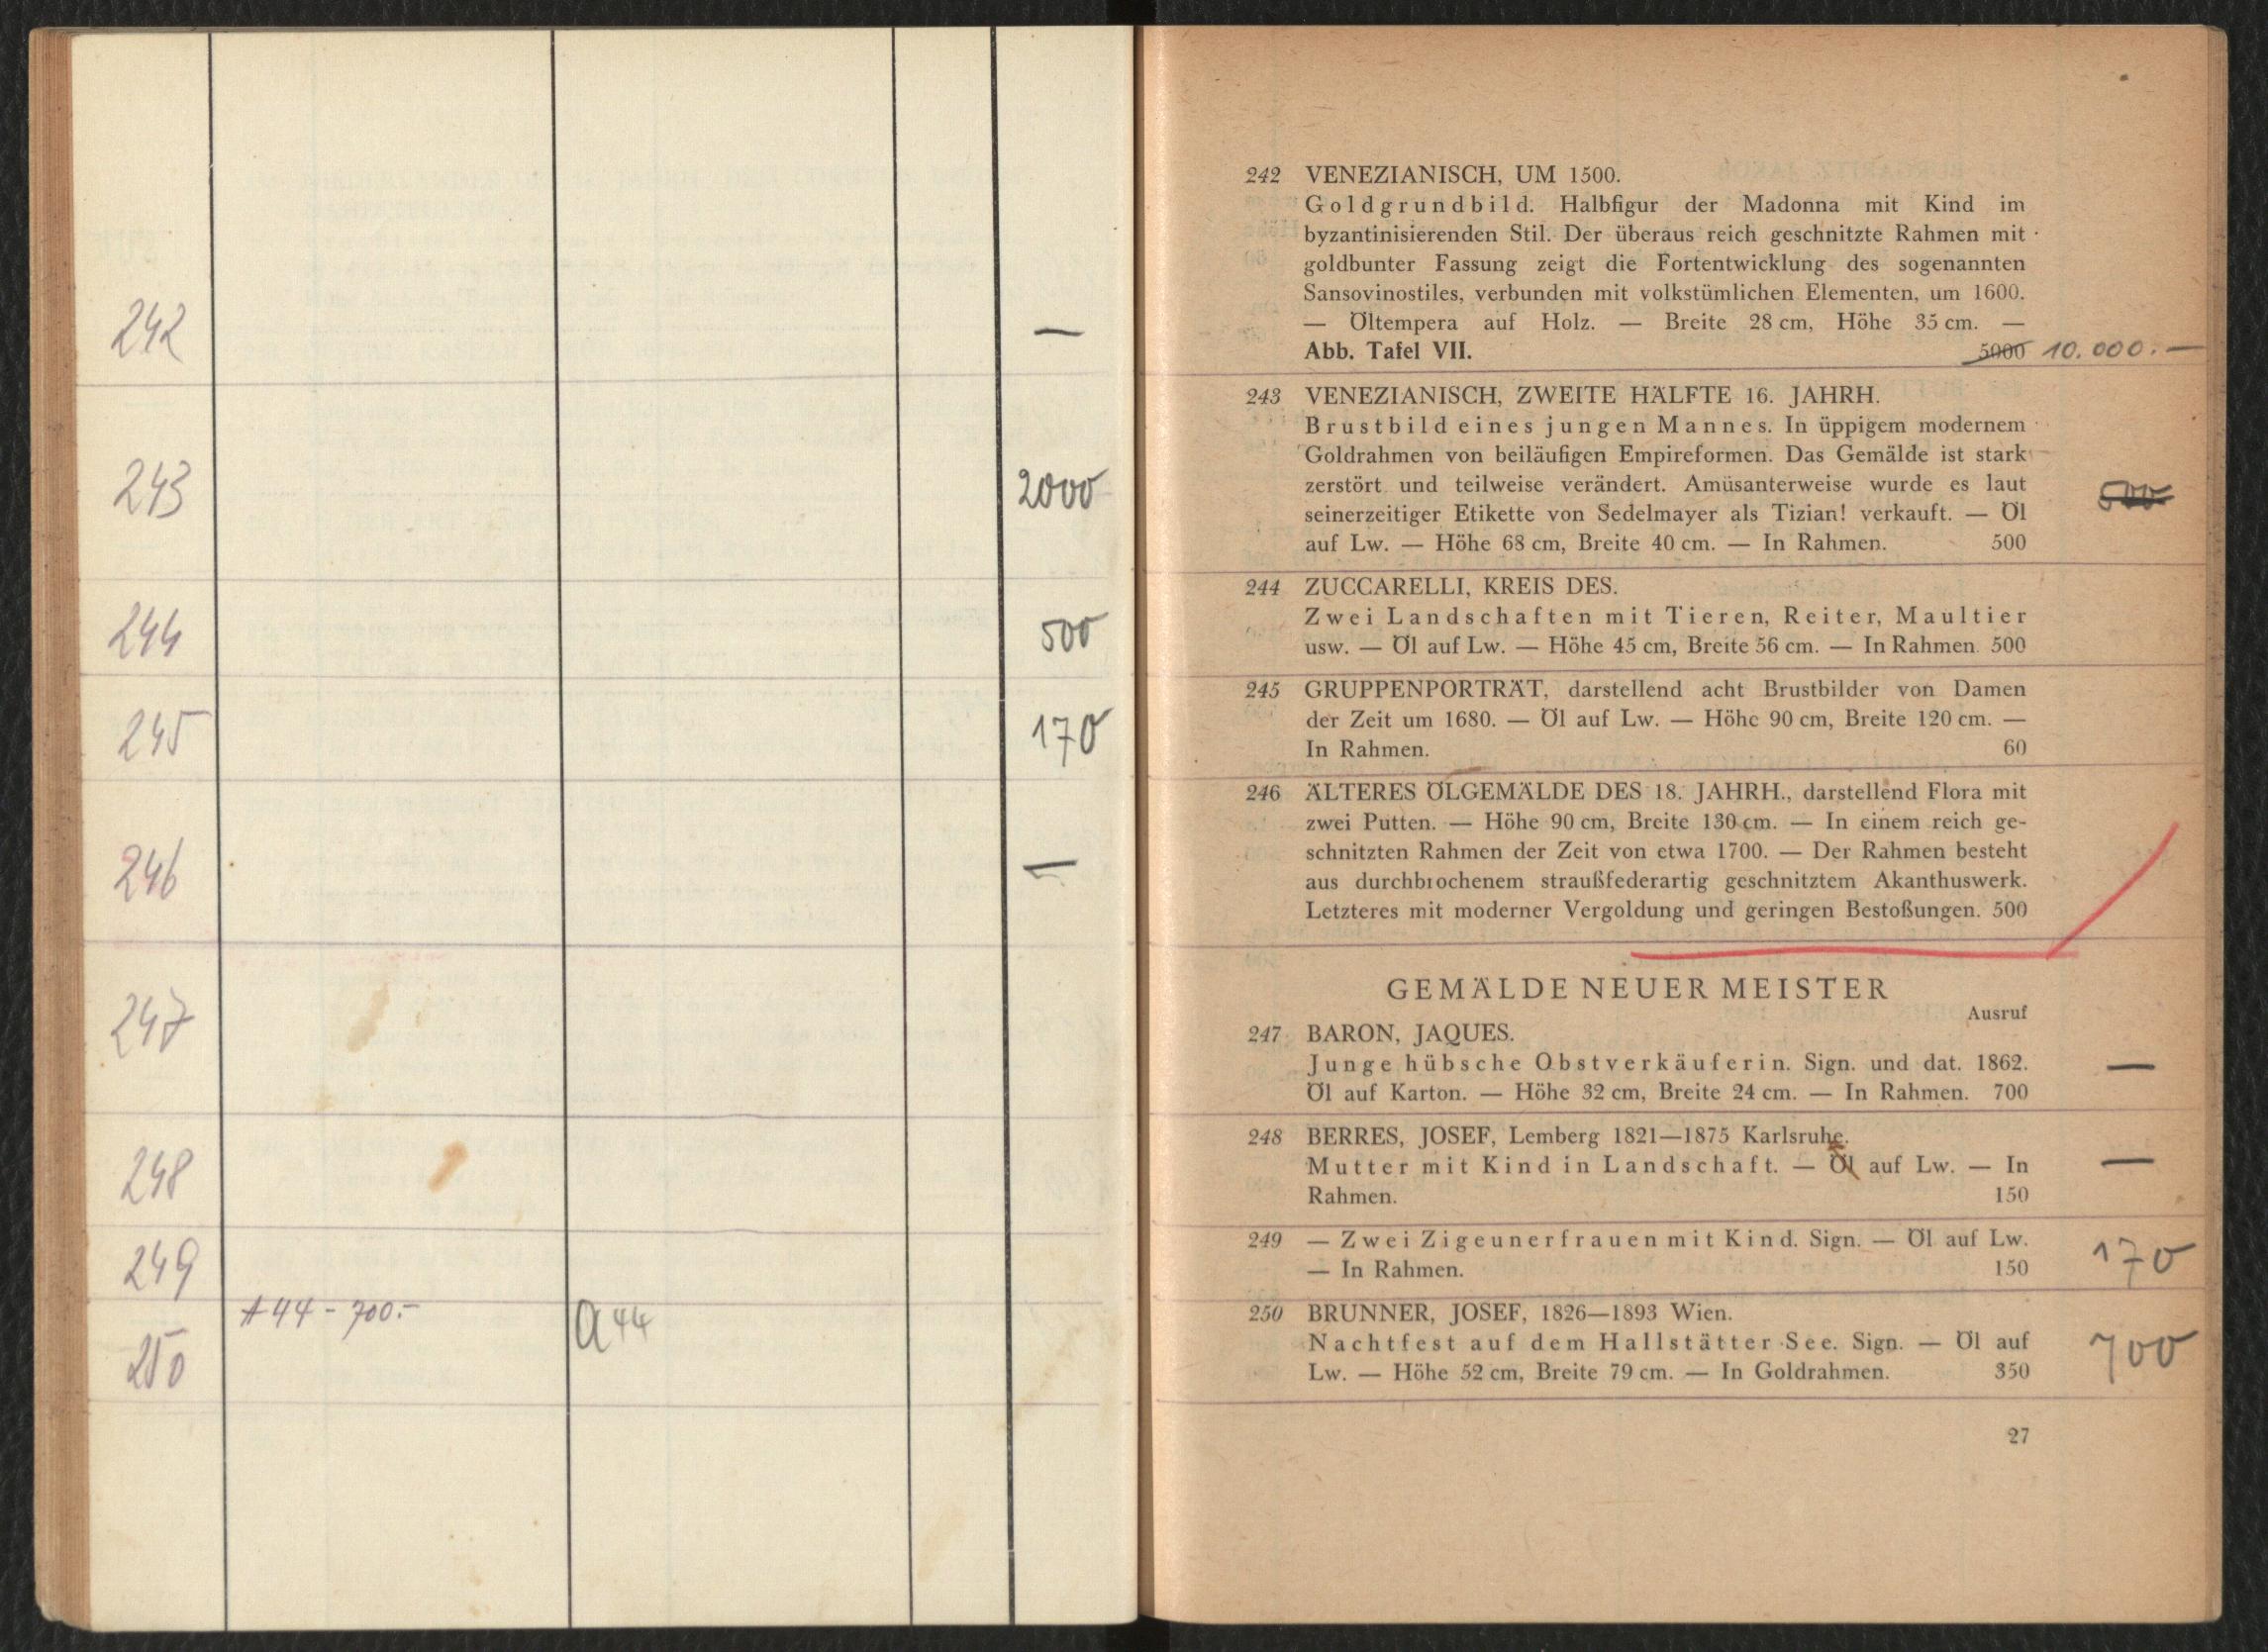 242
—
243
2000
244
500
245
170
246
—
247
248
249
A 44 - 700.-
a 44
250
242 VENEZIANISCH, UM 1500.
Goldgrundbild. Halbfigur der Madonna mit Kind im
byzantinisierenden Stil. Der überaus reich geschnitzte Rahmen mit
goldbunter Fassung zeigt die Fortentwicklung des sogenannten
Sansovinostiles, verbunden mit volkstümlichen Elementen, um 1600.
— Öltempera auf Holz. — Breite 28 cm, Höhe 35 cm. —
Abb. Tafel VII. 5000 10.000.—
243 VENEZIANISCH, ZWEITE HÄLFTE 16. JAHRH.
Brustbild eines jungen Mannes. In üppigem modernem
Goldrahmen von beiläufigen Empireformen. Das Gemälde ist stark
zerstört und teilweise verändert. Amüsanterweise wurde es laut
seinerzeitiger Etikette von Sedelmayer als Tizian! verkauft. — Öl
auf Lw. — Höhe 68 cm, Breite 40 cm. — In Rahmen. 500
500
244 ZUCCARELLI, KREIS DES.
Zwei Landschaften mit Tieren, Reiter, Maultier
usw. — Öl auf Lw. — Höhe 45 cm, Breite 56 cm. — In Rahmen. 500
245 GRUPPENPORTRÄT, darstellend acht Brustbilder von Damen
der Zeit um 1680. — Öl auf Lw. — Höhe 90 cm, Breite 120 cm. —
In Rahmen. 60
246 ÄLTERES ÖLGEMÄLDE DES 18. JAHRH., darstellend Flora mit
zwei Putten. — Höhe 90 cm, Breite 130 cm. — In einem reich ge-
schnitzten Rahmen der Zeit von etwa 1700. — Der Rahmen besteht
aus durchbrochenem straußfederartig geschnitztem Akanthuswerk.
Letzteres mit moderner Vergoldung und geringen Bestoßungen. 500
GEMÄLDE NEUER MEISTER
Ausruf
247 BARON, JAQUES.
Junge hübsche Obstverkäuferin. Sign. und dat. 1862. —
Öl auf Karton. — Höhe 32 cm, Breite 24 cm. — In Rahmen. 700
248 BERRES, JOSEF, Lemberg 1821—1875 Karlsruhe.
Mutter mit Kind in Landschaft. — Öl auf Lw. — In —
Rahmen. 150
249 — Zwei Zigeunerfrauen mit Kind. Sign. — Öl auf Lw.
— In Rahmen. 150 170
250 BRUNNER, JOSEF, 1826—1893 Wien.
Nachtfest auf dem Hallstätter See. Sign. — Öl auf
Lw. — Höhe 52 cm, Breite 79 cm. — In Goldrahmen. 350 700
27